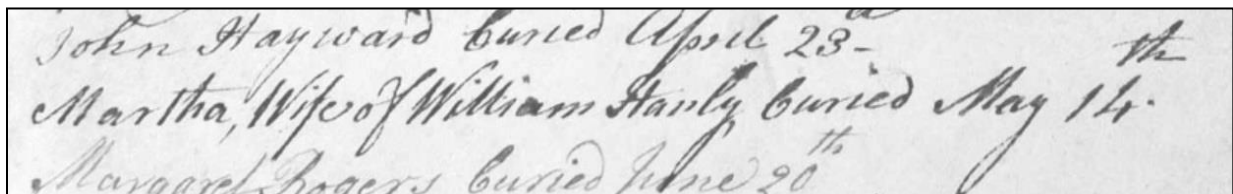 John Hayward buried April 23^d
Martha, Wife of William Hanly buried May 14^th.
Margaret Rogers buried June 20^th